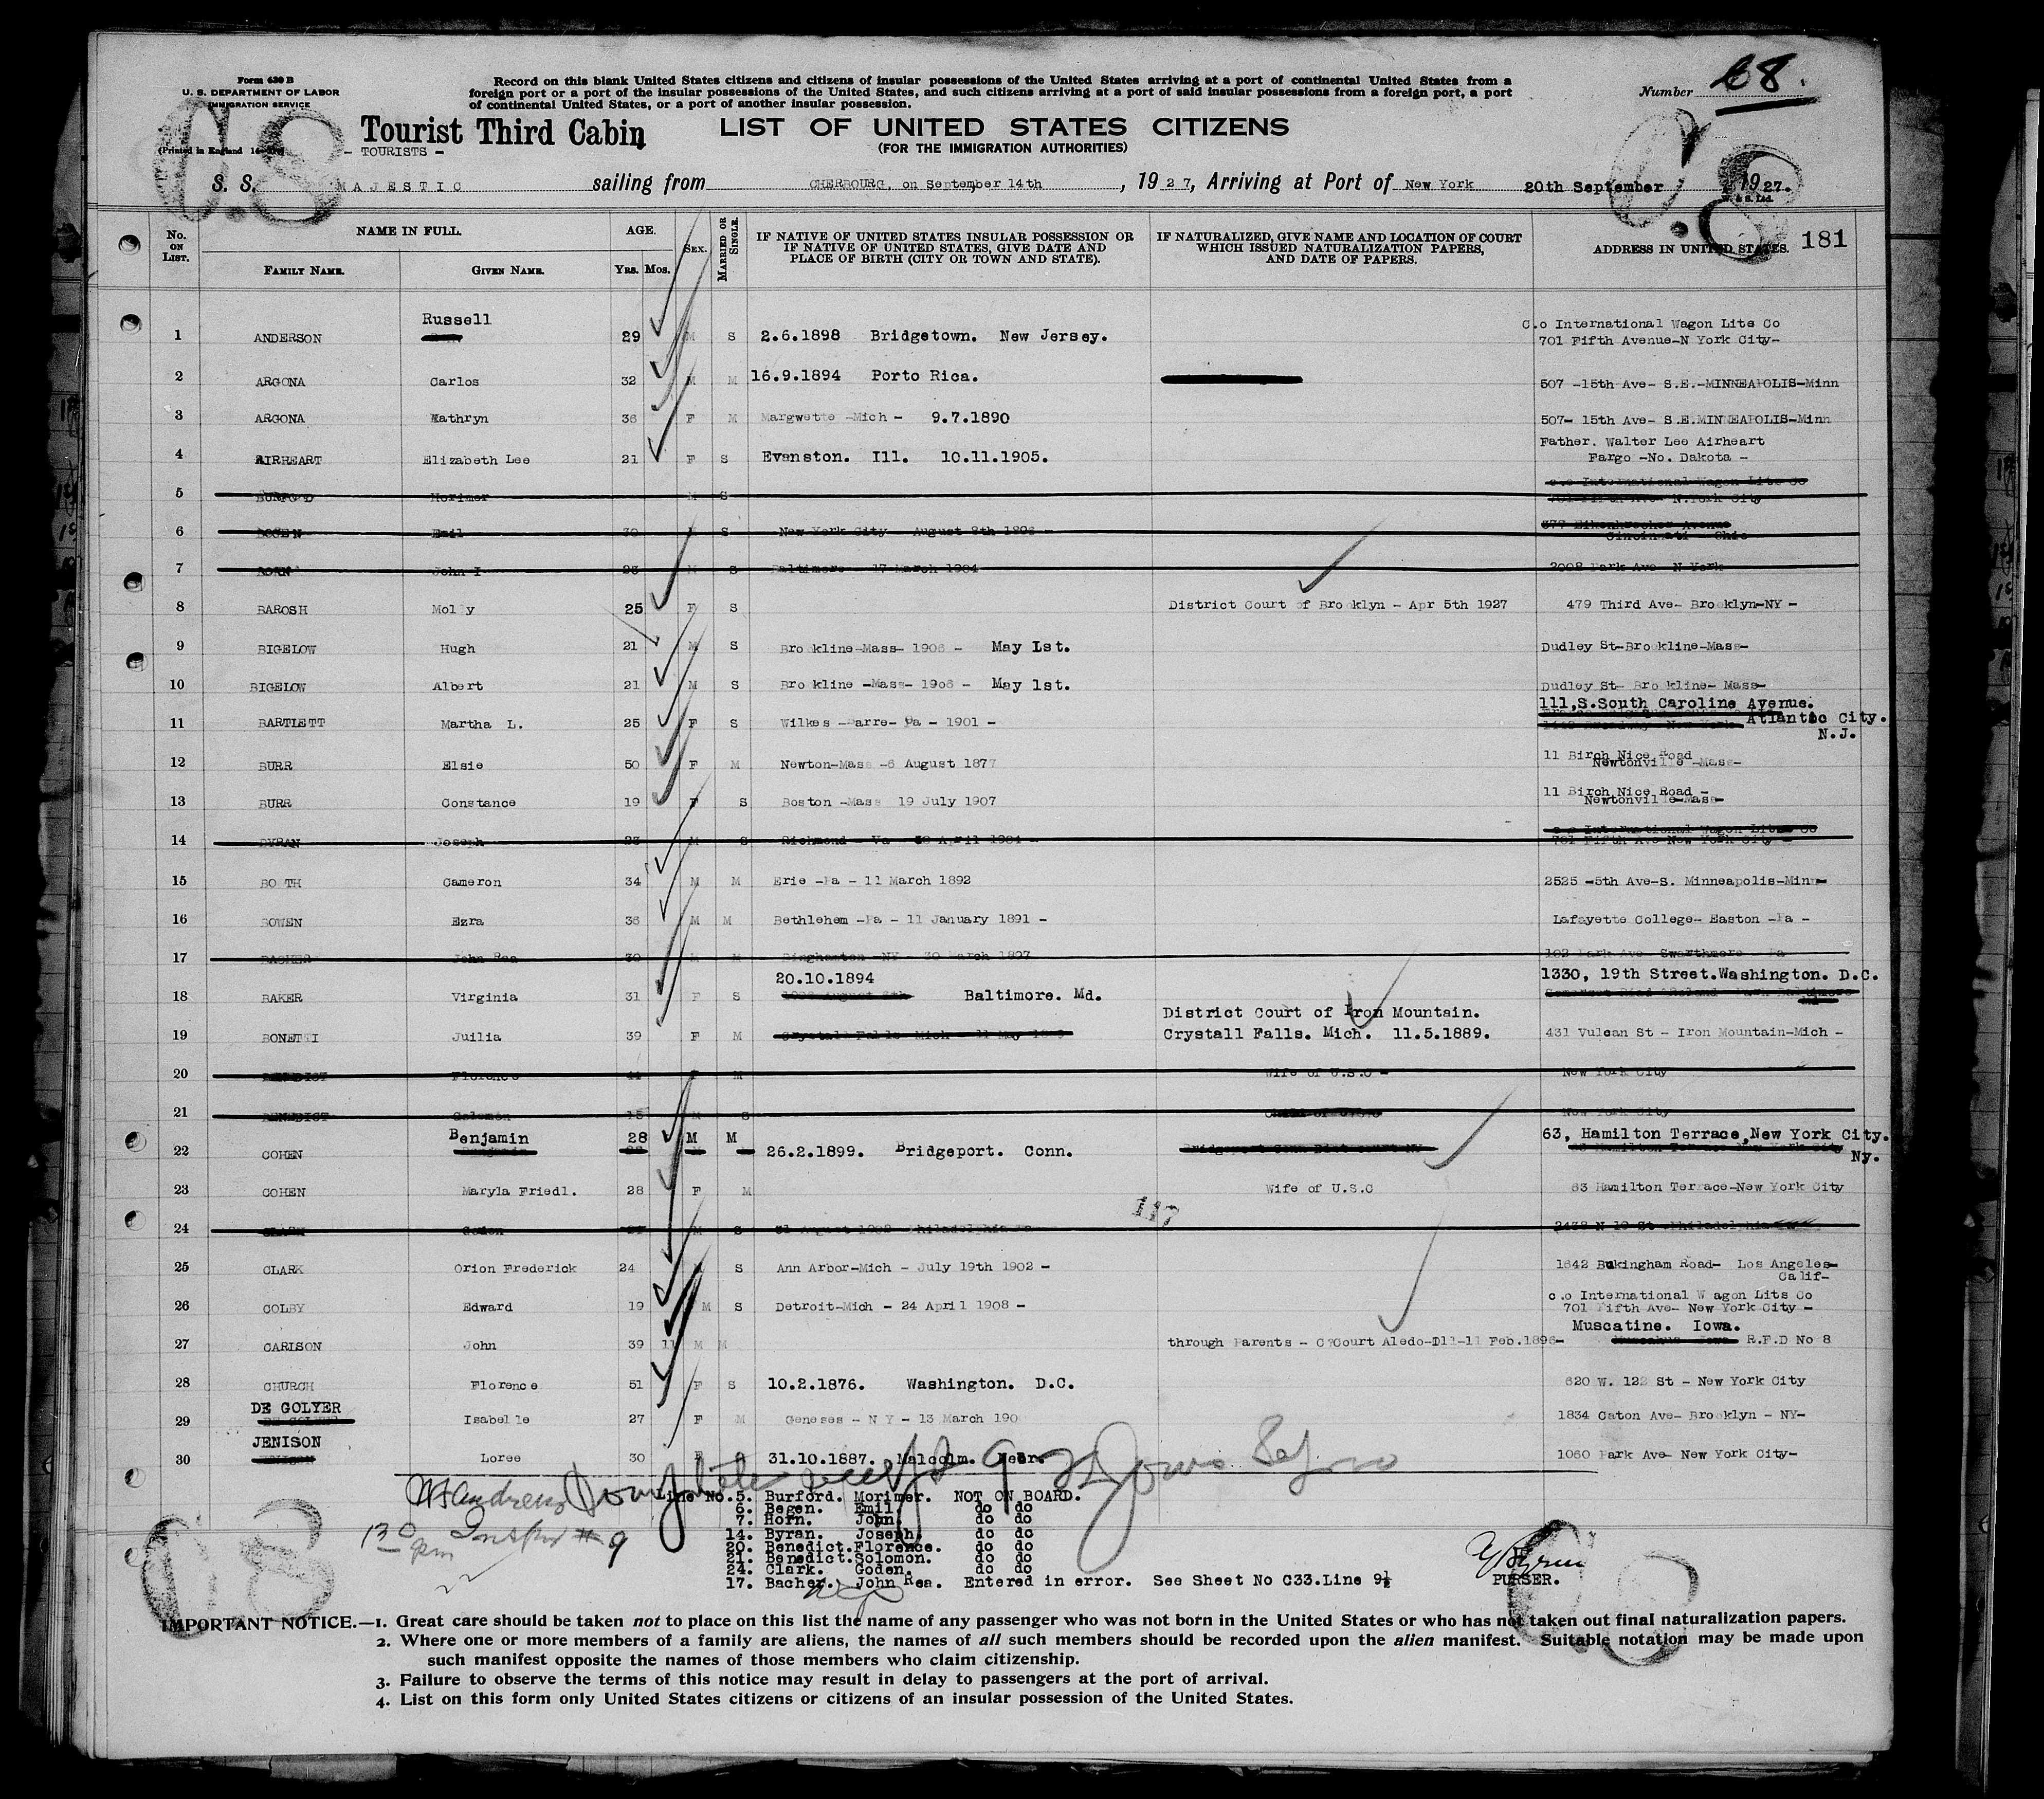 Form 630 B
U. S. DEPARTMENT OF LABOR
IMMIGRATION SERVICE
(Printed in England
Record on this blank United States citizens and citizens of insular possessions of the United States arriving at a port of continental United States from a
foreign port or a port of the insular possessions of the United States, and such citizens arriving at a port of said insular possessions from a foreign port, a port
of continental United States, or a port of another insular possession.
Number 68.
C.8 C.8
Tourist Third Cabin LIST OF UNITED STATES CITIZENS
- TOURISTS - (FOR THE IMMIGRATION AUTHORITIES)
S. S. MAJESTIC sailing from CHERBOURG, on September 14th, 1927, Arriving at Port of New York 20th September 1927.
W. & S. Ltd.
181
No. ON LIST. NAME IN FULL. AGE. SEX. MARRIED OR SINGLE. IF NATIVE OF UNITED STATES INSULAR POSSESSION OR IF NATIVE OF UNITED STATES, GIVE DATE AND PLACE OF BIRTH (CITY OR TOWN AND STATE). IF NATURALIZED, GIVE NAME AND LOCATION OF COURT WHICH ISSUED NATURALIZATION PAPERS, AND DATE OF PAPERS. ADDRESS IN UNITED STATES.
FAMILY NAME. GIVEN NAME. YRS. MOS.
Russell C.o International Wagon Lits Co
1 ANDERSON 29 M S 2.6.1898 Bridgetown. New Jersey. 701 Fifth Avenue-N York City-
2 ARGONA Carlos 32 M M 16.9.1894 Porto Rica. 507 -15th Ave- S.E.-MINNEAPOLIS-Minn
3 ARGONA Kathryn 36 F M Margwette -Mich - 9.7.1890 507- 15th Ave- S.E.MINNEAPOLIS-Minn
Father. Walter Lee Airheart
4 AIRHEART Elizabeth Lee 21 F S Evanston. Ill. 10.11.1905. Fargo -No. Dakota -
c.o International Wagon Lits Co
5 BURFORD Morimer M S 701 Fifth Ave- N.York City
377 Avenue
6 Emil 30 S New York City - August 8th 1896 - Cincinnati - Ohio
7 John I 23 M S Baltimore - 17 March 1904 2008 Park Ave- N York
8 BAROSH Molly 25 F S District Court of Brooklyn - Apr 5th 1927 479 Third Ave- Brooklyn-NY -
9 BIGELOW Hugh 21 M S Brookline-Mass- 1906 - May 1st. Dudley St-Brookline-Mass-
10 BIGELOW Albert 21 M S Brookline -Mass- 1906 - May 1st. Dudley St- Brookline- Mass-
111,S.South Caroline Avenue.
11 BARTLETT Martha L. 25 F S Wilkes -Barre- Pa - 1901 - Atlantic City.
N.J.
11 Birch Nice Road
12 BURR Elsie 50 F M Newton-Mass -6 August 1877 Newtonville -Mass-
11 Birch Nice Road -
13 BURR Constance 19 F S Boston -Mass 19 July 1907 Newtonville-Mass-
c.o International Wagon Lits Co
14 BYRAN Joseph 23 M S Richmond - Va - April 1904 - 701 Fifth Ave New York City -
15 BOOTH Cameron 34 M M Erie -Pa - 11 March 1892 2525 -5th Ave-S. Minneapolis-Minn-
16 BOWEN Ezra 36 M M Bethlehem -Pa - 11 January 1891 - Lafayette College- Easton -Pa -
17 BACHER John Rea 30 M M Binghamton -NY - 30 March 1897 102 Park Ave- Swarthmore - Pa
20.10.1894 1330, 19th Street.Washington. D.C.
18 BAKER Virginia 31 F S Baltimore. Md.
District Court of Iron Mountain.
19 BONETTI Juilia 39 F M Crystall Falls- Mich - 11 May Crystall Falls. Mich. 11.5.1889. 431 Vulcan St - Iron Mountain-Mich -
20 BENEDICT Florence 44 F M Wife of U.S.C - New York City
21 BENEDICT Solomon 15 M S Child of U.S.C New York City
Benjamin 28 M M 63, Hamilton Terrace,New York City.
22 COHEN 26.2.1899. Bridgeport. Conn. Bridgeport Conn Dist court NY 63 Hamilton Terrace New York City Ny.
23 COHEN Maryla Friedl. 28 F M Wife of U.S.C 63 Hamilton Terrace-New York City
117
24 CLARK Goden M S 31 August Philadelphia 2438 N 19 St -Philadelphia
25 CLARK Orion Frederick 24 M S Ann Arbor-Mich - July 19th 1902 - 1642 Bukingham Road- Los Angeles-
Calif-
c.o International Wagon Lits Co
26 COLBY Edward 19 M S Detroit-Mich - 24 April 1908 - 701 Fifth Ave- New York City -
Muscatine. Iowa.
27 CARLSON John 39 11 M M through Parents - C?Court Aledo-Dll-11 Feb.1896- R.F.D No 8
28 CHURCH Florence 51 F S 10.2.1876. Washington. D.C. 620 W. 122 St - New York City
DE GOLYER
29 Isabelle 27 F M Geneses - N Y - 13 March 190 1834 Caton Ave- Brooklyn - NY-
JENISON
30 Loree 30 F 31.10.1887. Malcolm. Nebr. 1060 Park Ave- New York City-
Line No.5. Burford. Morimer. NOT ON BOARD.
6. Begen. Emil do do
7. Horn. John. do do
14. Byran. Joseph. do do
20. Benedict.Florence. do do
21. Benedict.Solomon. do do
24. Clark. Goden. do do
17. Bacher. John Rea. Entered in error. See Sheet No C33.Line 9½
PURSER.
IMPORTANT NOTICE.—1. Great care should be taken not to place on this list the name of any passenger who was not born in the United States or who has not taken out final naturalization papers.
2. Where one or more members of a family are aliens, the names of all such members should be recorded upon the alien manifest. Suitable notation may be made upon
such manifest opposite the names of those members who claim citizenship.
3. Failure to observe the terms of this notice may result in delay to passengers at the port of arrival.
4. List on this form only United States citizens or citizens of an insular possession of the United States.